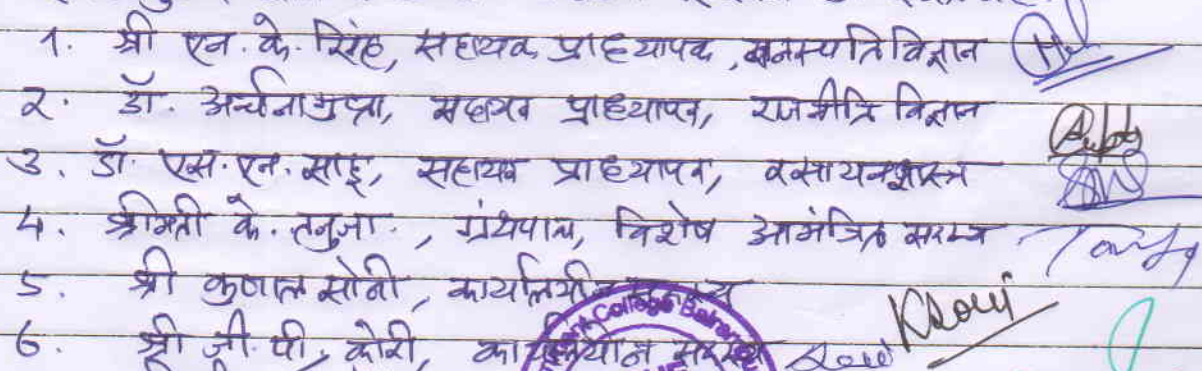 1. श्री एन. के. सिंह, सहायक प्राध्यापक, वनस्पति विज्ञान
2. डॉ. अर्चना गुप्ता, सहायक प्राध्यापक, राजनीति विज्ञान
3. डॉ. एस. एन. साहू, सहायक प्राध्यापक, रसायनशास्त्र
4. श्रीमती के. तनुजा, ग्रंथपाल, विशेष आमंत्रित सदस्य
5. श्री कुणाल सोनी, कार्यालयीन सदस्य
KSoni
6. श्री जी. पी. कोरी, कार्यालयीन सदस्य
College